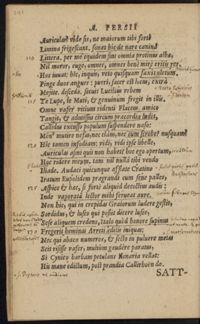 A. PERSII
Auriculas? vide sis, ne maiorum tibi forte
Limina frigescant, sonat hic de nare canina
Littera. per me equidem sint omnia protinus alba,
Nil moror. euge, omnes, omnes bene miræ eritis res.
Hoc iuuat: hic, inquis, veto quisquam faxit oletum.
Pinge duos angues: pueri, sacer est locus, extra
Meijte. discedo. secuit Lucilius vrbem
Te Lupe, te Muti, & genuinum fregit in illis.
Omne vafer vitium ridenti Flaccus amico
Tangit, & admissus circum præcordia ludit,
Callidus excusso populum suspendere naso:
Men' mutire nefas, nec clam, nec cum scrobe? nusquam?
Hic tamen infodiam: vidi, vidi ipse libelle:
Auriculas asini quis non habet? hoc ego opertum,
Hoc ridere meum, tam nil nulla tibi vendo
Iliade. Audaci quicunque afflate Cratino
Iratum Eupolidem prægrandi cum sene palles,
Aspice & hæc, si forte aliquid decoctius audis:
Inde vaporata lector mihi ferueat aure.
Non hic, qui in crepidas Graiorum ludere gestit,
Sordidus, & lusco qui possit dicere lusce,
Sese aliquem credens, Italo quod honore supinus
Fregerit heminas Areti ædilis iniquas:
Nec qui abaco numeros, & secto in puluere metas
Scit risisse vafer, multum gaudere paratus,
Si Cynico barbam petulans Nonaria vellat:
His mane edictum, post prandia Callirhoën do.
SATT-